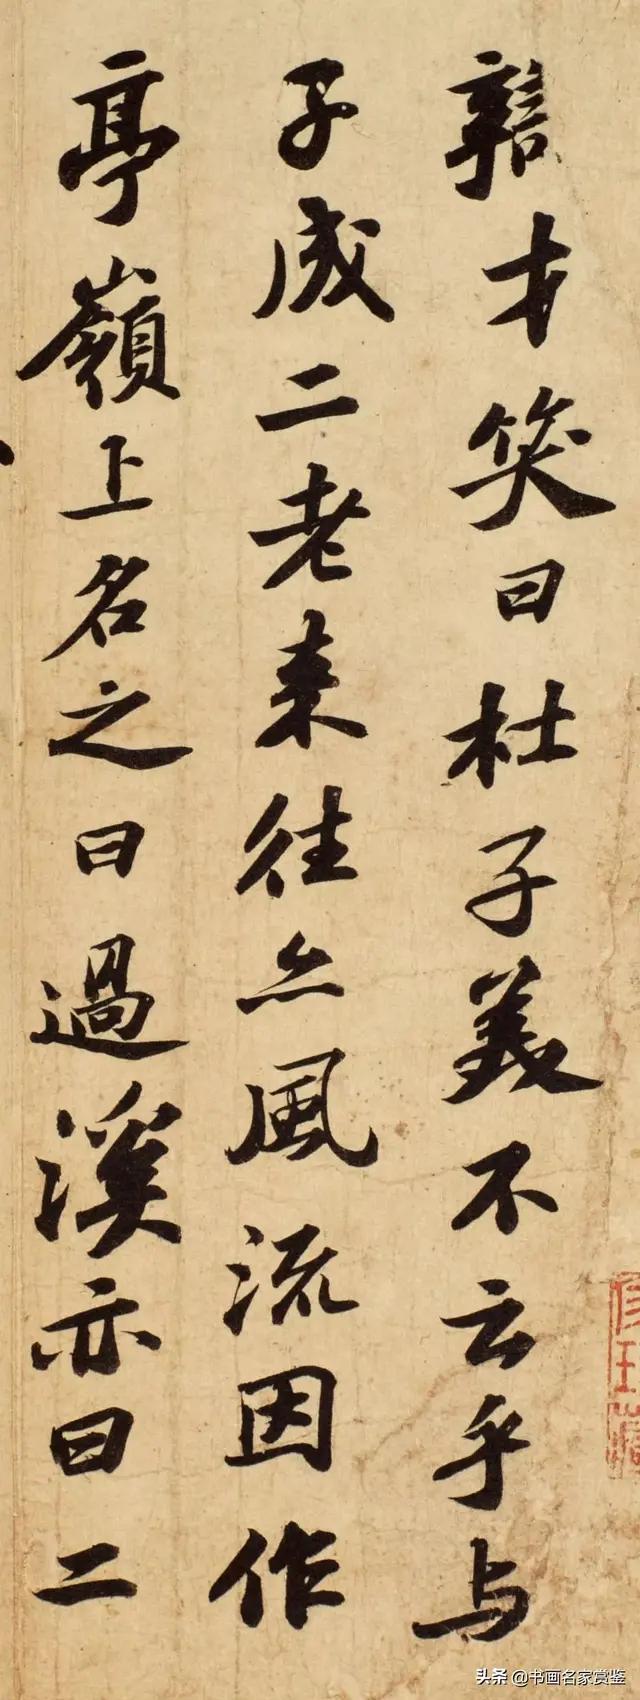 辯才笑曰杜子美不云乎与
子成二老来往亦風流因作
亭嶺上名之曰過溪亦曰二
头条 @书画名家赏鉴